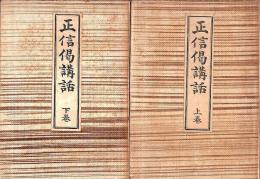 正信偈講話
上巻
正信偈講話
下巻